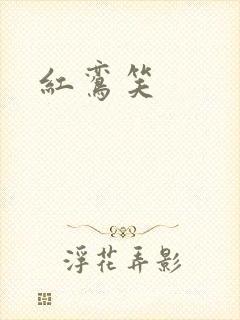 紅鸞笑
浮花弄影